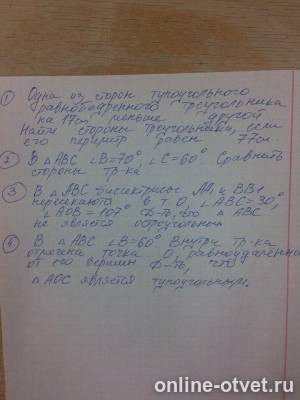 ① Одна из сторон тупоугольного
равнобедренного треугольника
на 17см меньше другой
Найти стороны треугольника, если
его периметр равен 77см.
② В △ABC ∠B=70°, ∠C=60° Сравнить
стороны тр-ка
③ В △ABC биссектрисы AA1 и BB1
пересекаются в т O, ∠ABC=30°,
∠AOB=107° Д-ть, что △ABC
не является остроугольным
④ В △ABC ∠B=60° Внутри тр-ка
отмечена точка O, равноудаленная
от его вершин Д-ть, что
△AOC является тупоугольным.
online-otvet.ru